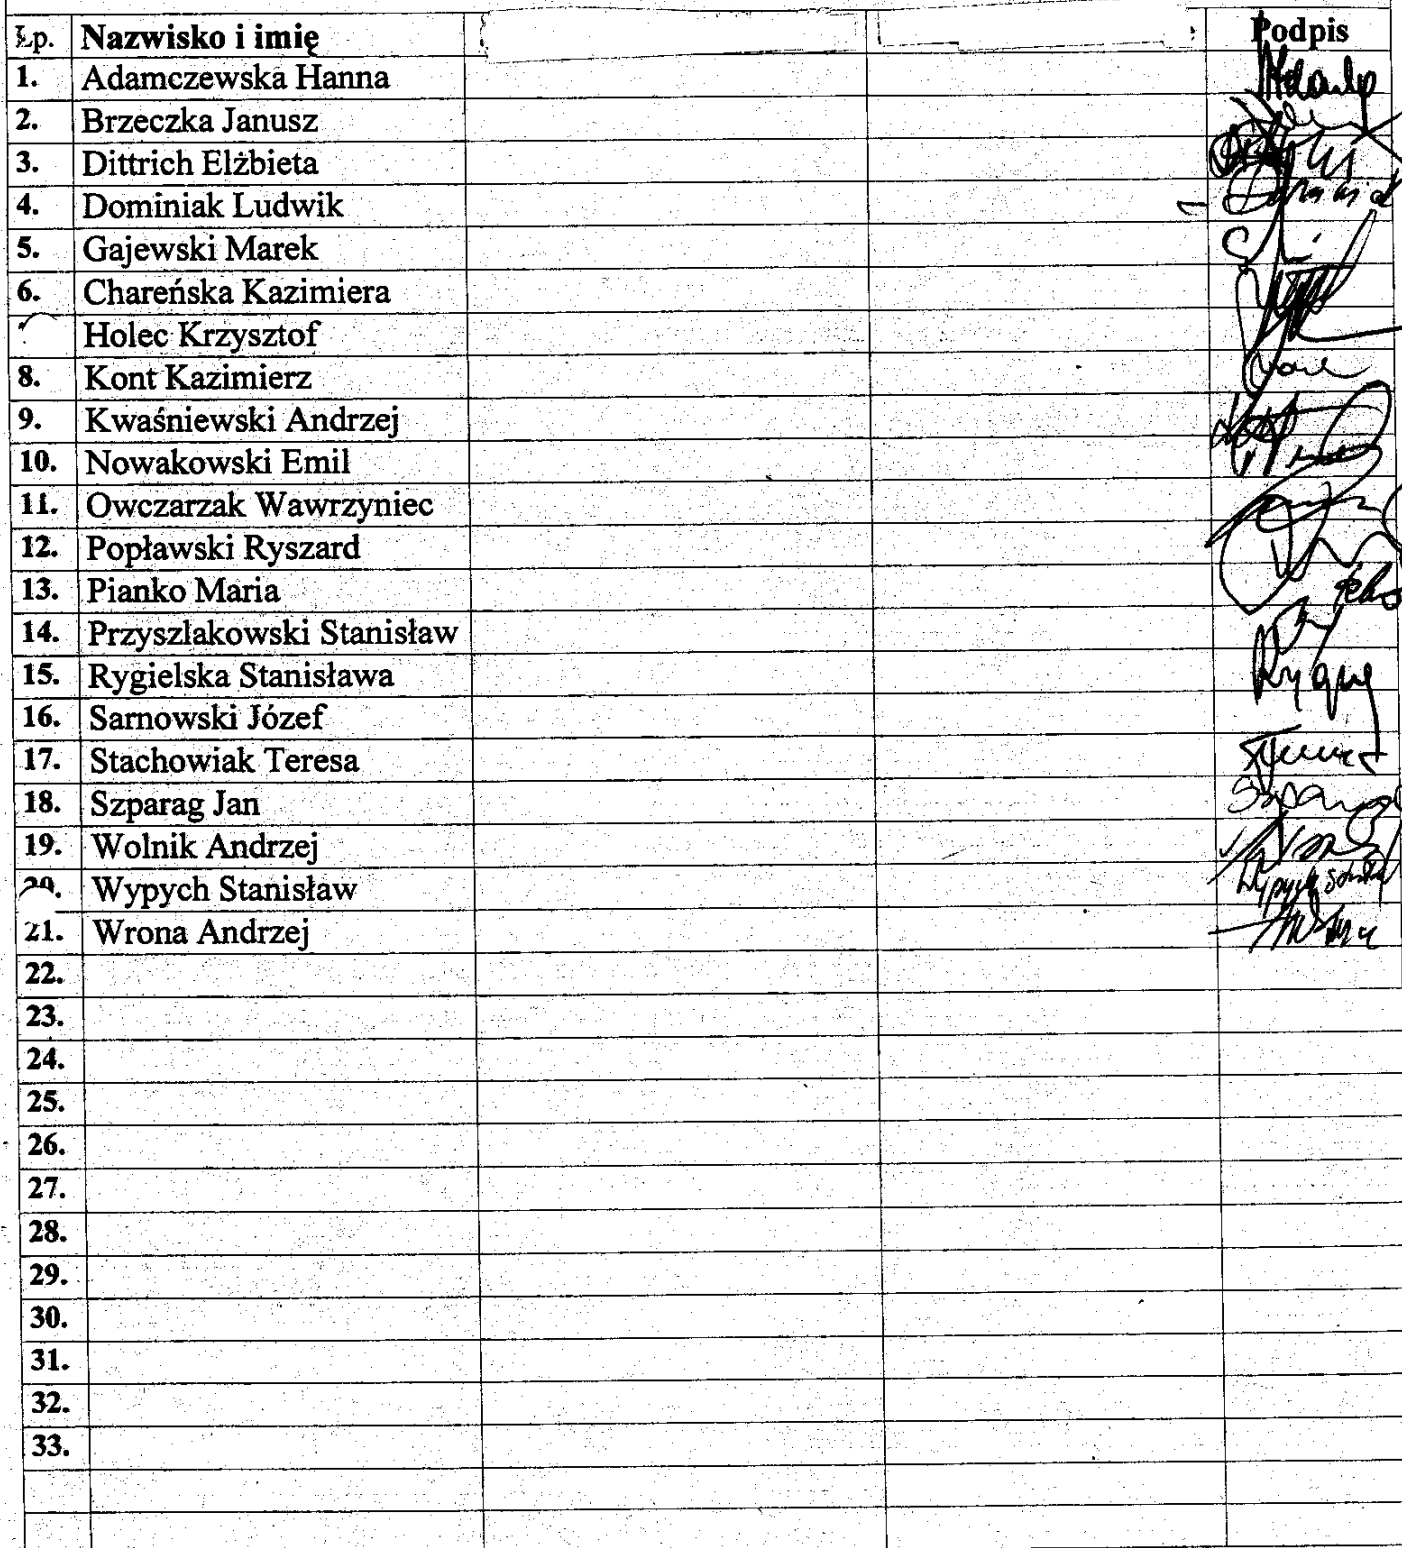 Lp. Nazwisko i imię Podpis
1. Adamczewska Hanna
2. Brzeczka Janusz
3. Dittrich Elżbieta
4. Dominiak Ludwik
5. Gajewski Marek
6. Chareńska Kazimiera
Holec Krzysztof
8. Kont Kazimierz
9. Kwaśniewski Andrzej
10. Nowakowski Emil
11. Owczarzak Wawrzyniec
12. Popławski Ryszard
13. Pianko Maria
14. Przyszlakowski Stanisław
15. Rygielska Stanisława
16. Sarnowski Józef
17. Stachowiak Teresa
18. Szparag Jan
19. Wolnik Andrzej
20. Wypych Stanisław
21. Wrona Andrzej
22.
23.
24.
25.
26.
27.
28.
29.
30.
31.
32.
33.